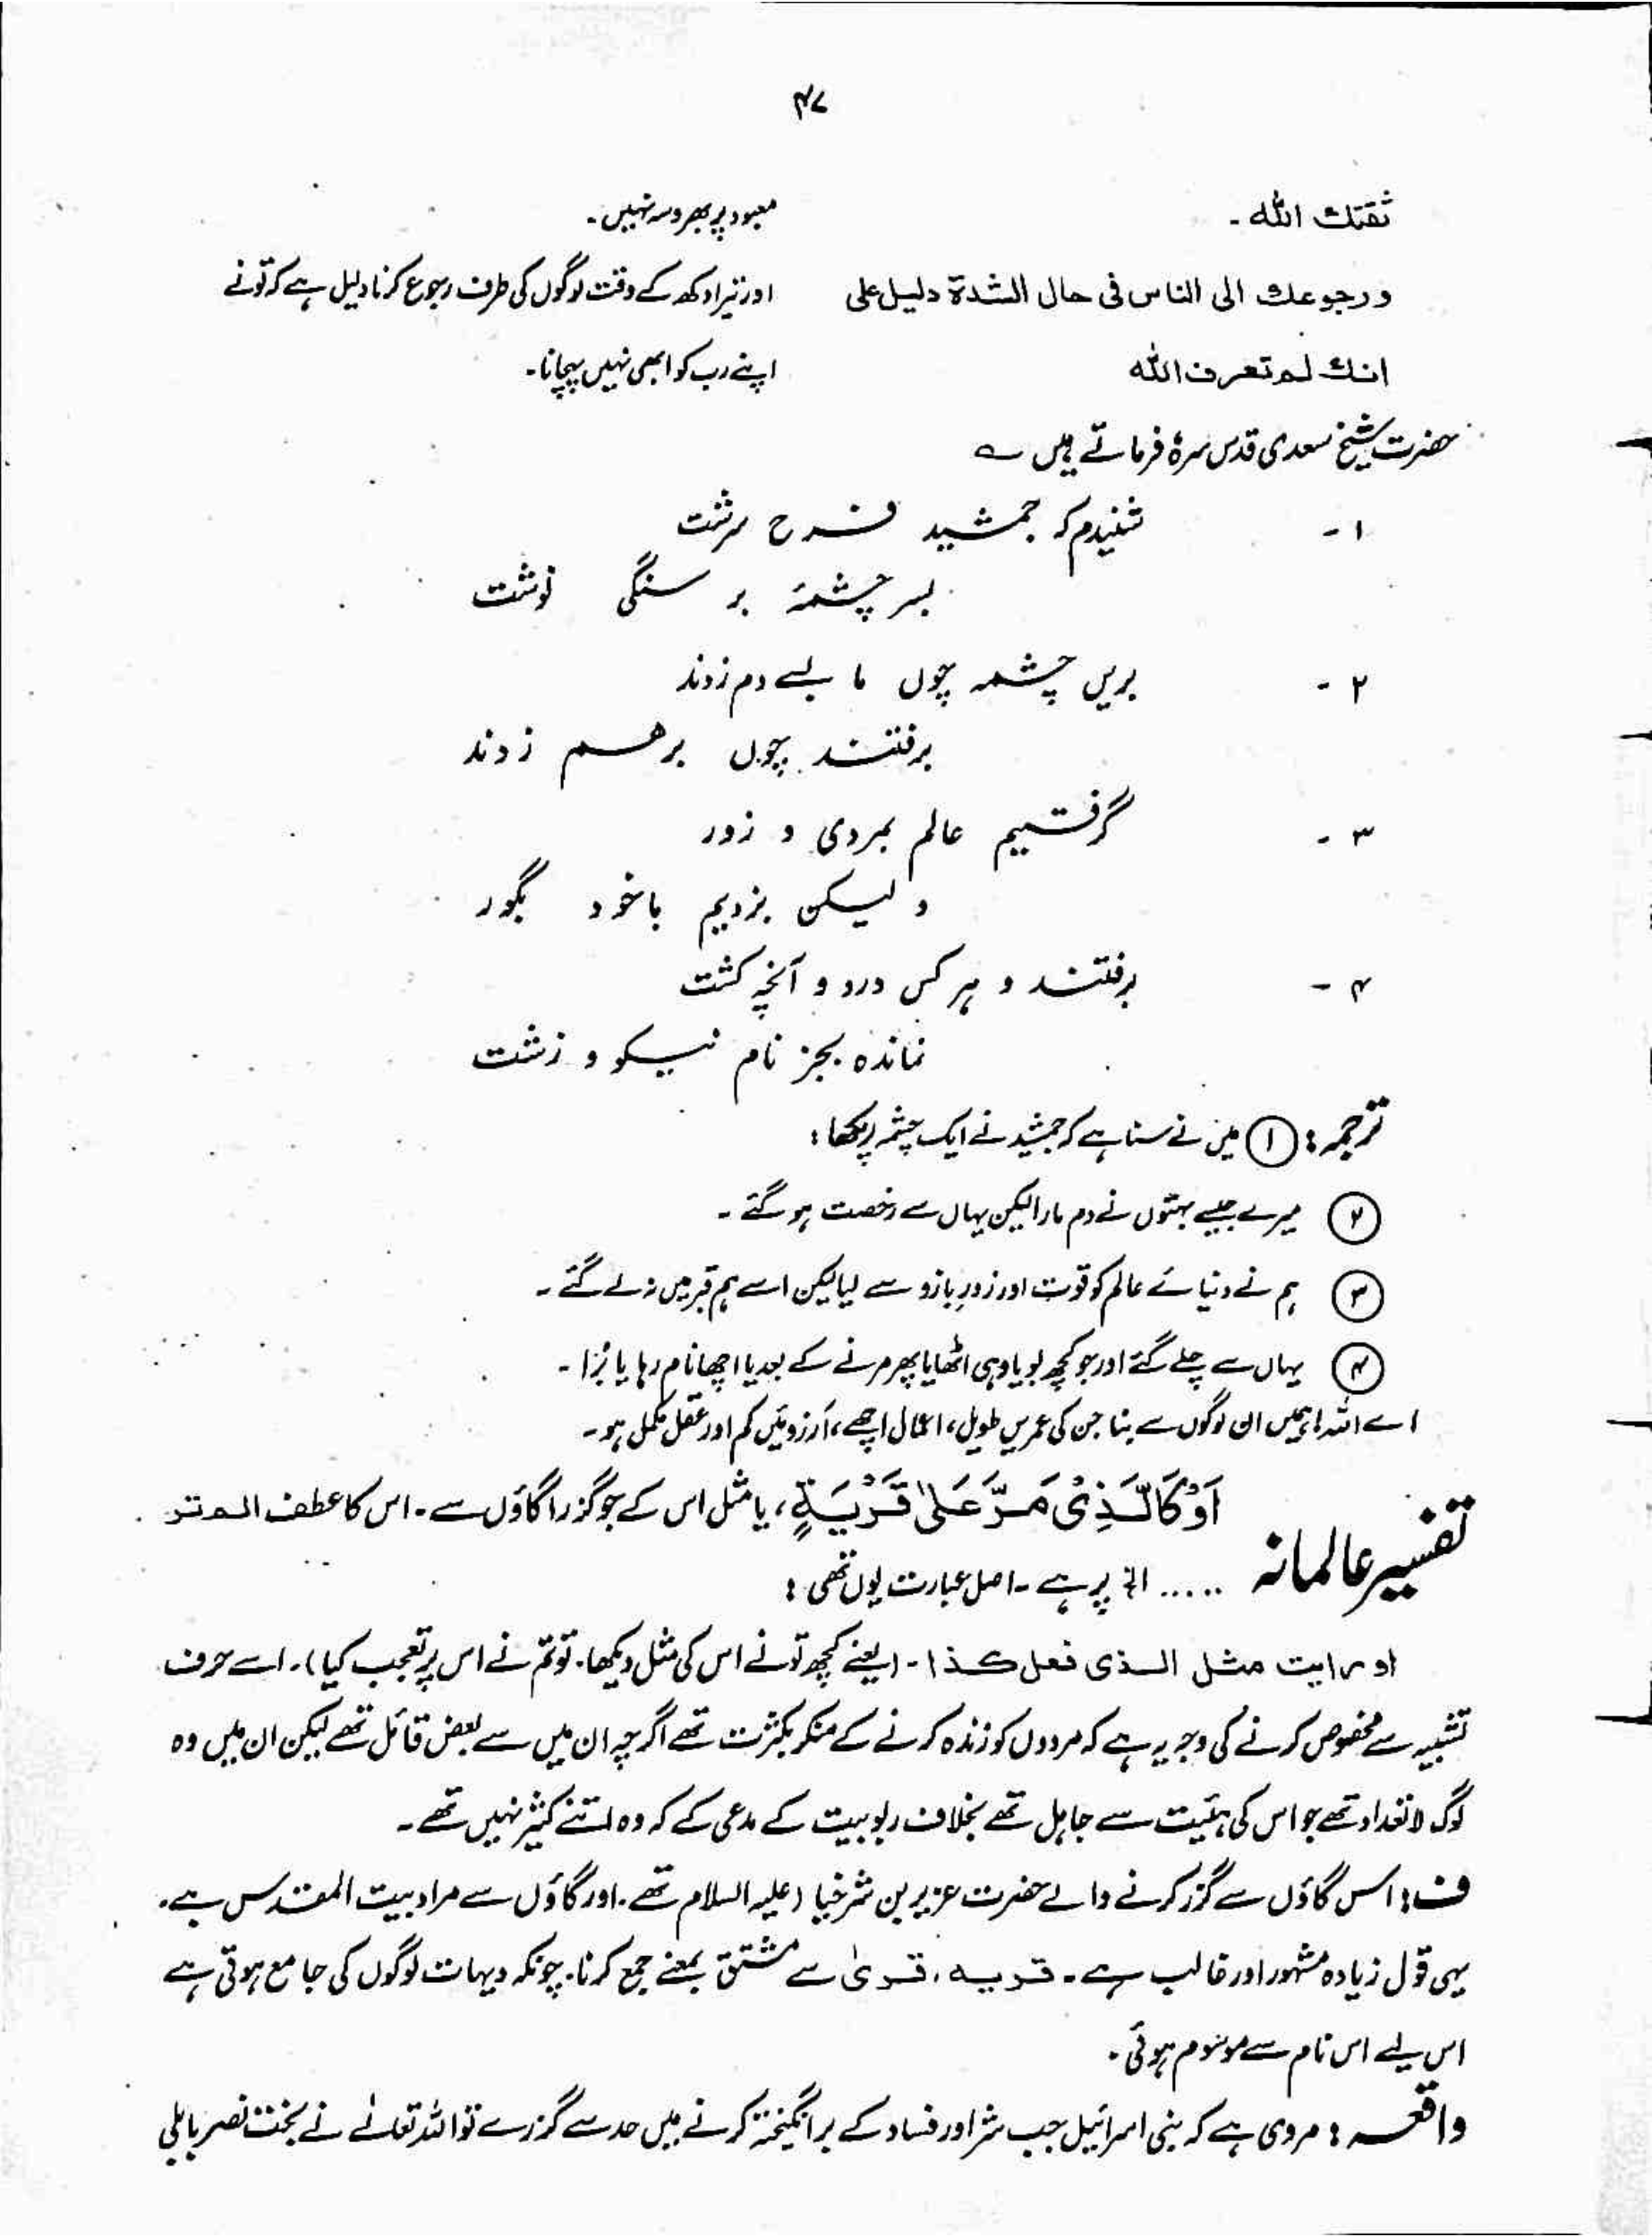 ۴۷
ثقتك الله۔ معبود پر بھروسہ نہیں۔
ورجوعك الى الناس فى حال الشدة دليل على اور تیرا دکھ کے وقت لوگوں کی طرف رجوع کرنا دلیل ہے کہ تو نے
انك لم تعرف الله اپنے رب کو ابھی نہیں پہچانا۔
حضرت شیخ سعدی قدس سرہٗ فرماتے ہیں ؎
۱- شنیدم کہ جمشید فرح سرشت
بسر چشمۂ بر سنگی نوشت
۲- بریں چشمہ چوں ما بسے دم زدند
برفتند چوں برهم زدند
۳- گرفتیم عالم بمردی و زور
ولیکن بزدیم باخود بگور
۴- برفتند و ہر کس درد و آنچہ کشت
نماندہ بجز نام نیکو و زشت
ترجمہ: ① میں نے سنا ہے کہ جمشید نے ایک چشمہ پر لکھا:
② میرے جیسے بہتوں نے دم مارا لیکن یہاں سے رخصت ہو گئے۔
③ ہم نے دنیائے عالم کو قوت اور زور بازو سے لیا لیکن اسے ہم قبر میں نہ لے گئے۔
④ یہاں سے چلے گئے اور جو کچھ بویا وہی اٹھایا پھر مرنے کے بعد یا اچھا نام رہا یا بُرا۔
اے اللہ! ہمیں ان لوگوں سے بنا جن کی عمریں طویل، اعمال اچھے، آرزوئیں کم اور عقل مکمل ہو۔
تفسیر عالمانہ اَوْ كَالَّذِىْ مَرَّ عَلٰى قَرْيَةٍ، یا مثل اس کے جو گزرا گاؤں سے۔ اس کا عطف الم تر
..... الخ پر ہے۔ اصل عبارت یوں تھی:
او رایت مثل الذی فعل کذا۔ (یعنے کچھ تو نے اس کی مثل دیکھا۔ تو تم نے اس پر تعجب کیا)۔ اسے حرف
تشبیہ سے مخصوص کرنے کی وجہ یہ ہے کہ مردوں کو زندہ کرنے کے منکر بکثرت تھے اگرچہ ان میں سے بعض قائل تھے لیکن ان میں وہ
لوگ لاتعداد تھے جو اس کی ہیئت سے جاہل تھے بخلاف ربوبیت کے مدعی کے کہ وہ اتنے کثیر نہیں تھے۔
ف: اس گاؤں سے گزر کرنے والے حضرت عزیر بن شرخیا (علیہ السلام تھے۔ اور گاؤں سے مراد بیت المقدس ہے۔
یہی قول زیادہ مشہور اور غالب ہے۔ قریہ، قریٰ سے مشتق بمعنے جمع کرنا۔ چونکہ دیہات لوگوں کی جامع ہوتی ہے
اس لیے اس نام سے موسوم ہوئی۔
واقعہ: مروی ہے کہ بنی اسرائیل جب شر اور فساد کے برانگیختہ کرنے میں حد سے گزرے تو اللہ تعالٰے نے بخت نصر بابلی